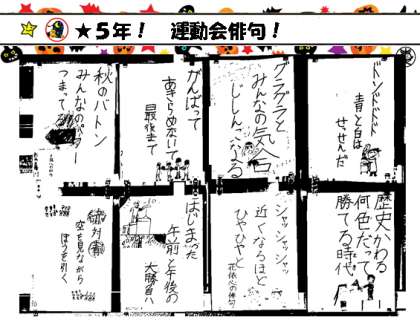 ★5年！　運動会俳句！
ドンドドドド
青と白は
せっせんだ
グラグラと
みんなの気合
じしんになる
がんばって
あきらめないで
最後まで
秋のバトン
みんなのパワー
つまってる
歴史かわる
何色だって
勝てる時代
シャッシャッシャッ
近くなるほど
ひやひやと
はじまった
午前と午後の
大勝負八
絶対青
空を見ながら
ぼうを引く